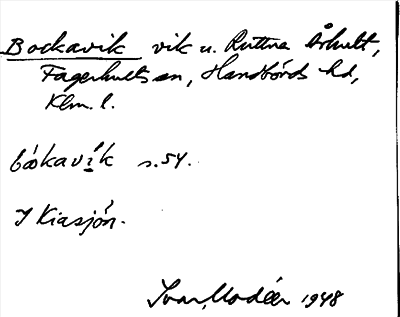 Bockavik vik u. Ruttna Århult,
Fagerhults sn, Handbörds hd,
Klm. l.
bòkavík s. 54.
I Kiasjön.
Ivar Modéer 1948